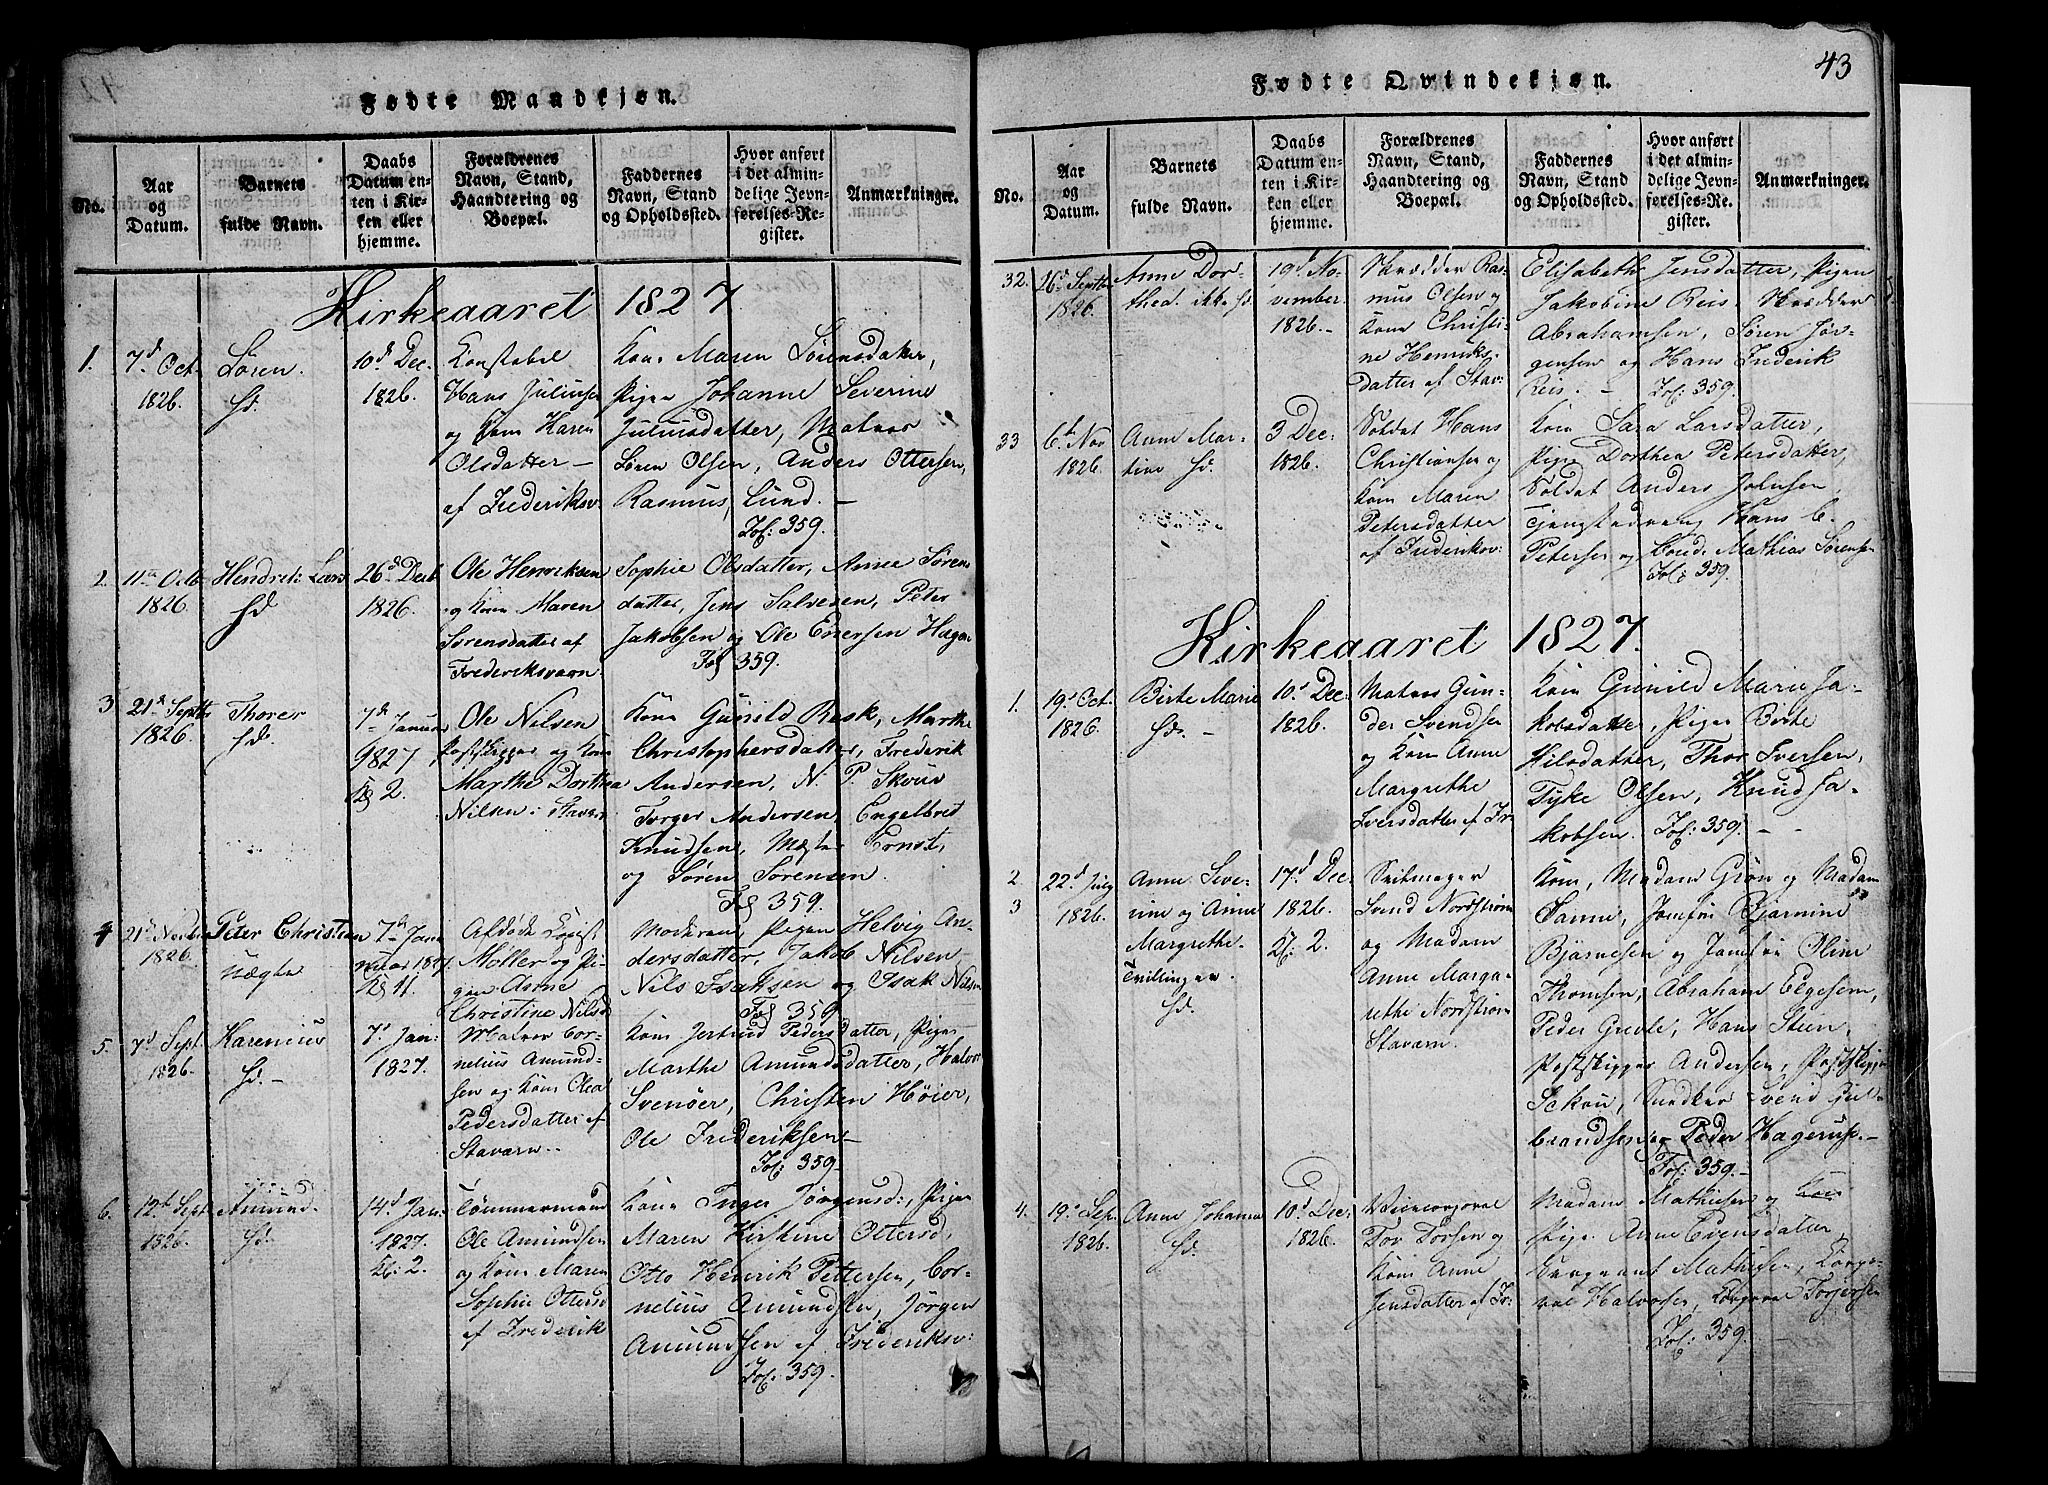 Fødte Mandkjøn.
No.
Aar
og
Datum.
Barnets
fulde Navn.
Daabs
Datum en-
ten i Kir-
ken eller
hjemme.
Forældrenes
Navn, Stand,
Haandtering og
Boepæl.
Faddernes
Navn, Stand
og Opholdssted.
Hvor anført
i det almin-
delige Jevn-
førelses-Re-
gister.
Anmærkninger.
Kirkeaaret 1827
1.
7d Oct.
1826.
Søren.
Hd.
10d Dec.
1826.
Konstabel
Hans Juliusen
og Kone Karen
Olsdatter –
af Frederiksv.
Kone Maren Sørensdatter,
Pigen Johanne Severine
Juliusdatter, Matros
Søren Olsen, Anders Ottersen,
Rasmus Lund. –
Fol: 359.
2.
11te Octb
1826
Hendrik
Hd
26d Decb
1826.
Ole Henriksen
og Kone Maren
Sørensdatter af
Frederiksværn.
Sophie Olsdatter, Anne Sørens
datter, Jens Salvesen, Peter
Jakobsen og Ole Enersen
Fol 359.
3
21d Septb
1826
Thorer
Hd.
7de Januar
1827
2.
Ole Nilsen
Postskipper og Kone
Marthe Dorthea
Nilsen i Stavern
Kone Gunild Rask, Marthe
Christophersdatter, Frederik
Andersen, N. P. Skous
Torger Andersen, Engelbret
Knudsen, Ernst,
og Søren Sørensen.
Fol 359.
4
21d
1826.
Peter Christian
uægte
7de Jan
nuar 1827.
11.
Afdøde
Møller og Pi-
gen Anne
Christine Nilsd
Moderen, Pigen Helvig An-
dersdatter, Jakob Nilsen
Nils Isaksen og Isak Nilsen
Fol 359
5.
7d Sept.
1826.
Karenius
Hd. –
7d Jan:
1827.
Matros Cor-
nelius Amund-
sen og Kone Olea
Pedersdatter af
Stavern.
Kone Jertrud Pedersdatter, Pigen
Marthe Amundsdatter, Halvor
Svenøer, Christen Høier,
Ole Frederiksen –
Fol: 359 –
6.
12te Sept
1826.
Amund.
Hd.
14d Jan:
1827.
2.
Tømmermand
Ole Amundsen
og Kone Maren
Sophie Ottersd
af Frederik
Kone Inger Jørgensd:, Pigen
Maren Kirstine Ottersd,
Otto Henrik Pettersen, Cor-
nelius Amundsen, Jørgen
Amundsen af Frederiksv:
Fol: 359.
43
Fødte Qvindekjøn.
No.
Aar
og
Datum.
Barnets
fulde Navn.
Daabs
Datum en-
ten i Kir-
ken eller
hjemme.
Forældrenes
Navn, Stand,
Haandtering og
Boepæl.
Faddernes
Navn, Stand
og Opholdssted.
Hvor anført
i det almin-
delige Jevn-
førelses-Re-
gister.
Anmærkninger.
32.
26d Septbr
1826.
Anne Dor-
thed. ikke Hd.
19d No-
vember.
1826. –
Skrædder Ras-
mus Olsen og
Kone Christi-
ne Henriks-
datter af Stav-
Elisabeth Jensdatter, Pigen
Jakobine Reis. Skrædder
Abrahamsen, Søren Jør-
gensen og Hans Frederik
Reis. –
Fol: 359.
33
6te Nov
1826.
Anne Mar-
tine Hd.
3 Dec:
1826.
Soldat Hans
Christiansen og
Kone Maren
Petersdatter
af Frederiksv:
Kone Sara Larsdatter,
Pige Dorthea Petersdatter,
Soldat Anders Johnsen.
Hans C.
Petersen og Mathias Sørensen
Fol: 359.
Kirkeaaret 1827.
1.
19d Oct.
1826.
Birte Marie
Hd. –
10d Dec:
1826.
Matros Gun-
der Svendsen
og Kone Anne
Margrethe
Iversdatter af Fr
Kone Gunild Marie Ja-
kobsdatter, Pigen Birte
Nilsdatter, Thor Iversen,
Tyke Olsen, Knud Ja-
kobsen. Fol: 359. – –
2.
3
22d July
1826.
Anne Seve-
rine og Anne
Margrethe.
Tvillinger.
Hd.
17d Dec:
1826.
2.
Svend Nordstrøm
og Madam
Anne Marga-
rethe Nordstrøm
Stavern.
Kone, Madam Grøn og Madam
Sanne, Jomfru Bjarnine
Bjarnesen og Jomfru Oline
Thomsen, Abraham Elgesem,
Peder Greve, Hans Steen,
Postskipper Andersen, Postskipper
Schou, Snedker Svend Gul-
brandsen og Peder Hagerup. –
Fol: 359 –
4.
19d Sep.
1826.
Anne Johanne
Hd.
10d Dec:
1826.
Vicecorporal
Tov Torsen og
Kone Anne
Jensdatter af Fr.
Madam Mathisen og
Pige Anne Evensdatter
Sergeant Mathisen, Corpo-
ral Halvorsen, Corporal Torjersen
Fol: 359. –